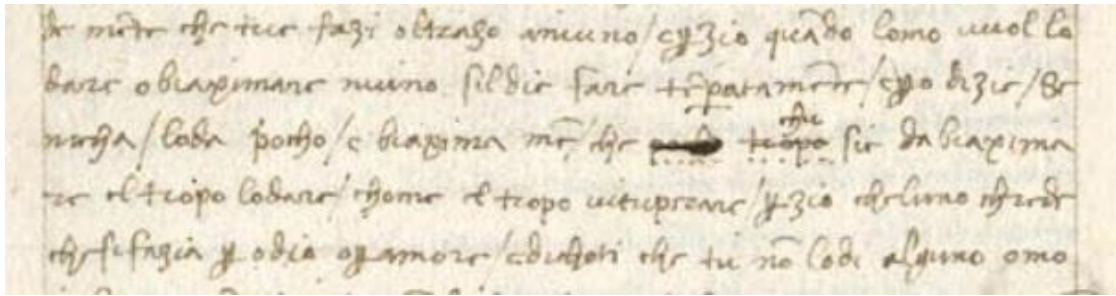 de mēte che tue fazi oltrazo aniuno / eꝑzio quādo lomo uuol lo
dare o biaximare niuno sil die fare tēperatamēte / eꝑo dizie / Se
necha / loda pocho / e biaxima mē / che tropo che sie da biaxima
re el tropo lodare / chome el tropo uituperare / ꝑzio cheluno chrede
che si fazia ꝑ odio oꝑ amore / e dichoti che tu nō lodi alguno omo